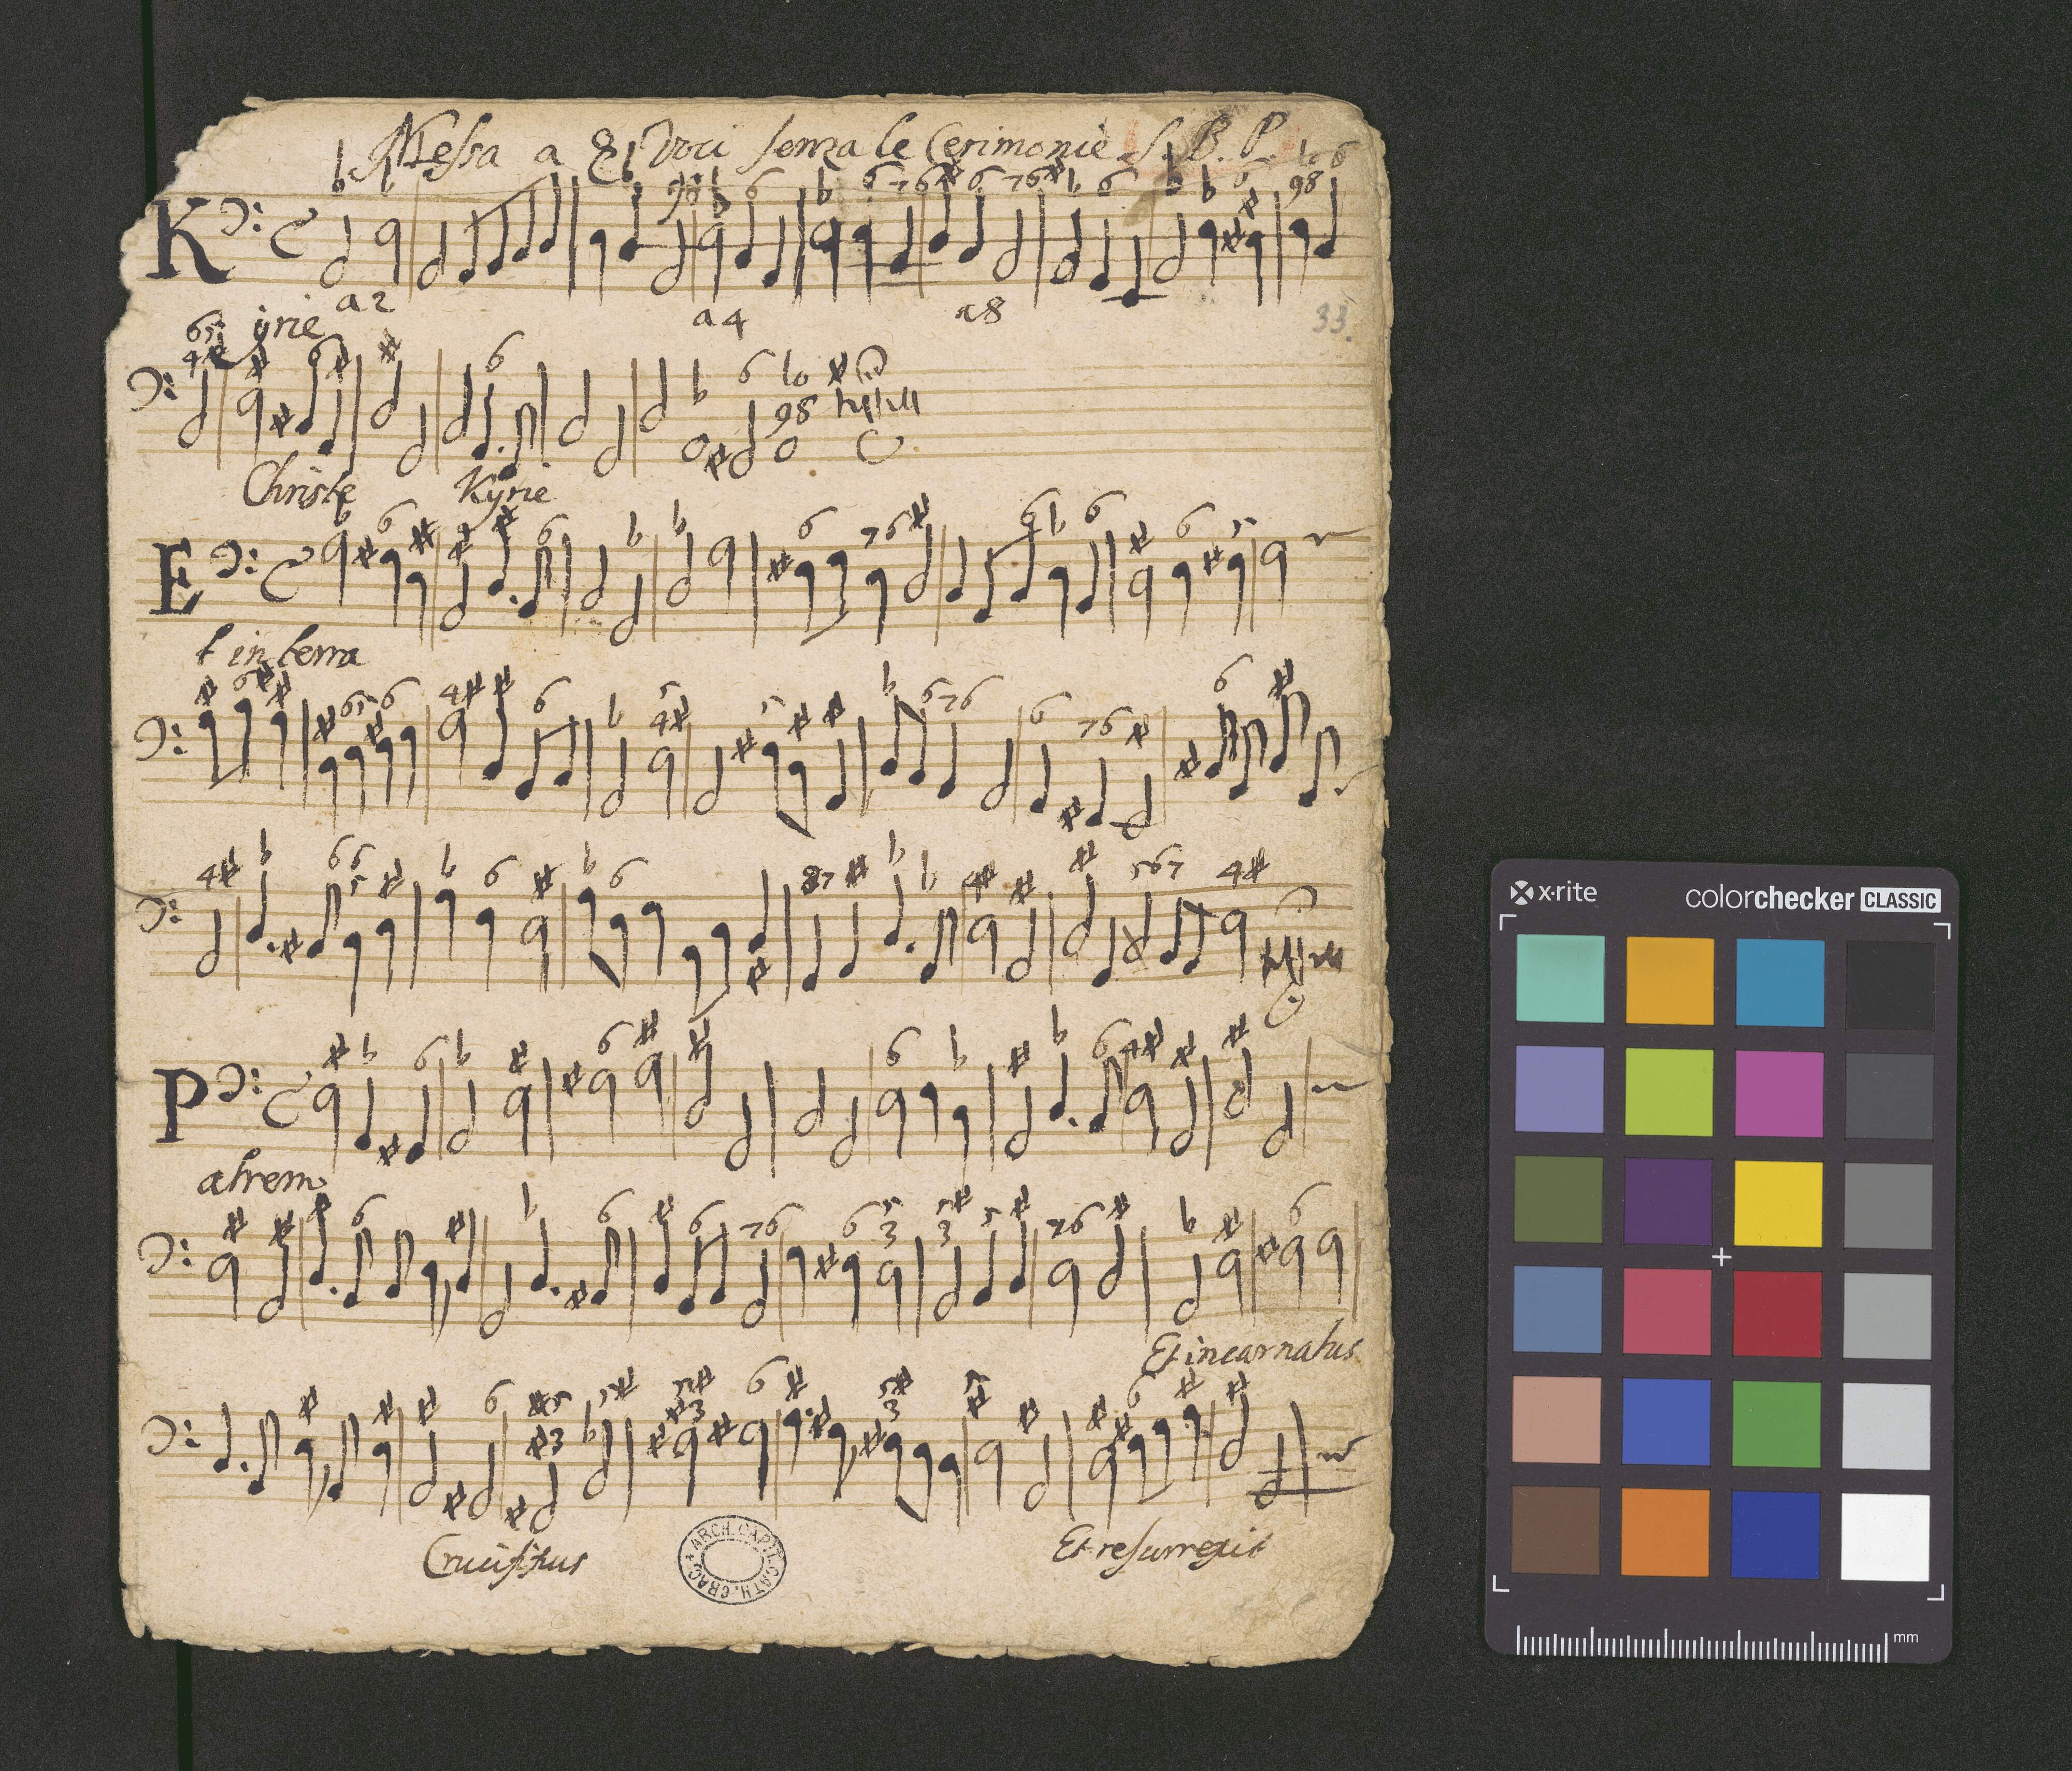 Messa a 8 Voci senza le Cerimonie S. B. P.
K
a 2
a 4
a 8
33.
yrie
Christe
Kyrie
E
t in terra
P
atrem
Et incarnatus
Crucifixus
Et resurrexit
ARCH. CAPIT. CATH. CRAC.
x·rite
colorchecker CLASSIC
mm